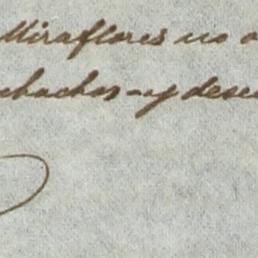 Miraflores no
uchachos - y dese